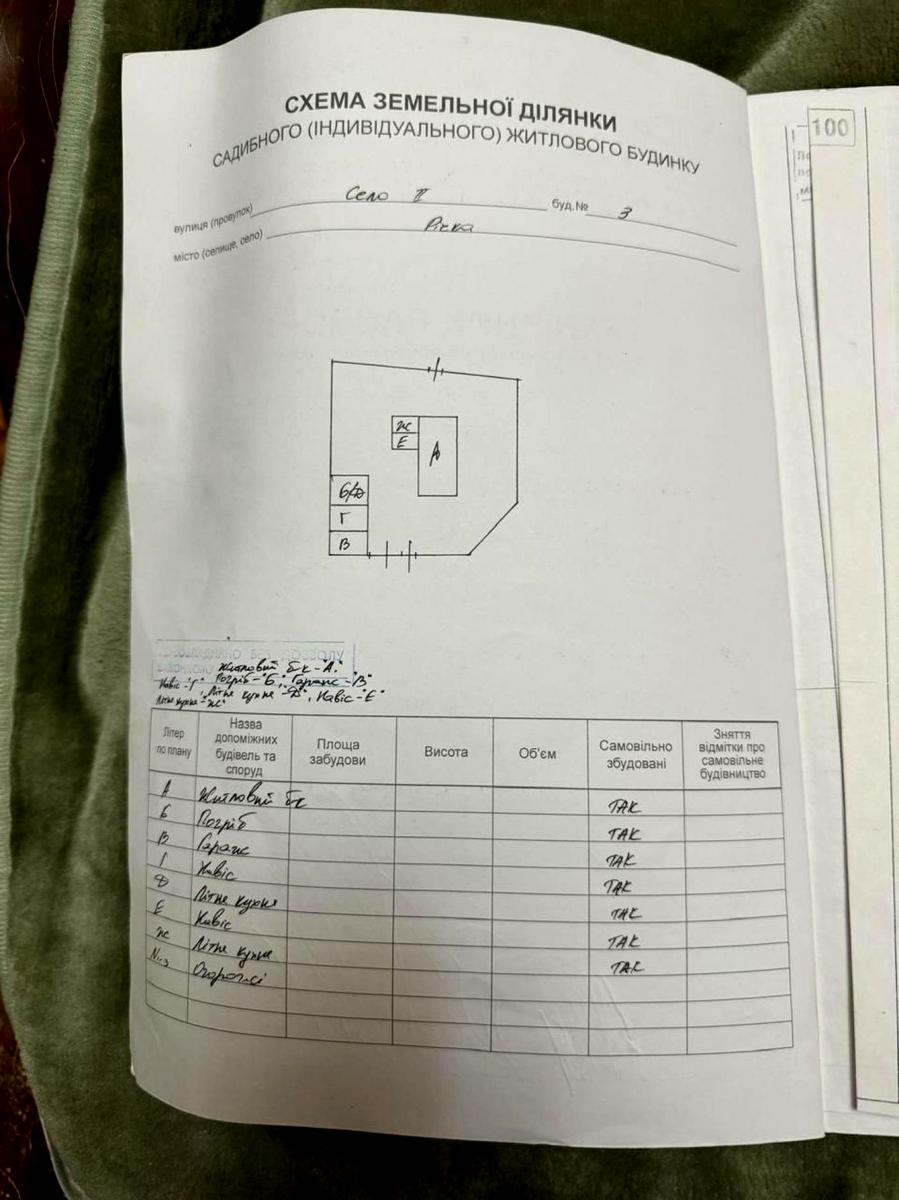 СХЕМА ЗЕМЕЛЬНОЇ ДІЛЯНКИ
САДИБНОГО (ІНДИВІДУАЛЬНОГО) ЖИТЛОВОГО БУДИНКУ
вулиця (провулок) Село ІІ буд.№ 3
місто (селище, село) Річка
100
Ж
Е
А
Б/Д
Г
В
Житловий бк-"А"
Навіс-"Г" Погріб-"Б", Гараж-"В"
, Літня кухня "Д", Навіс-"Е"
Літня кухня-"Ж"
Літер по плану Назва допоміжних будівель та споруд Площа забудови Висота Об'єм Самовільно збудовані Зняття відмітки про самовільне будівництво
А Житловий бк ТАК
Б Погріб ТАК
В Гараж ТАК
Г Навіс ТАК
Д Літня кухня ТАК
Е Навіс ТАК
Ж Літня кухня ТАК
Огорожі